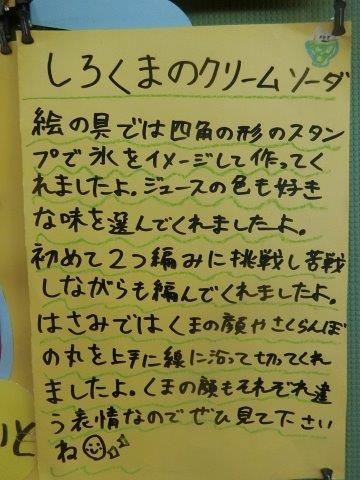 しろくまのクリームソーダ
絵の具では四角の形のスタン
プで氷をイメージして作ってく
れましたよ。ジュースの色も好き
な味を選んでくれましたよ。
初めて2つ編みに挑戦し苦戦
しながらも編んでくれましたよ。
はさみではくまの顔やさくらんぼ
の丸を上手に線に沿って切ってくれ
ましたよ。くまの顔もそれぞれ違
う表情なのでぜひ見て下さい
ね
いと